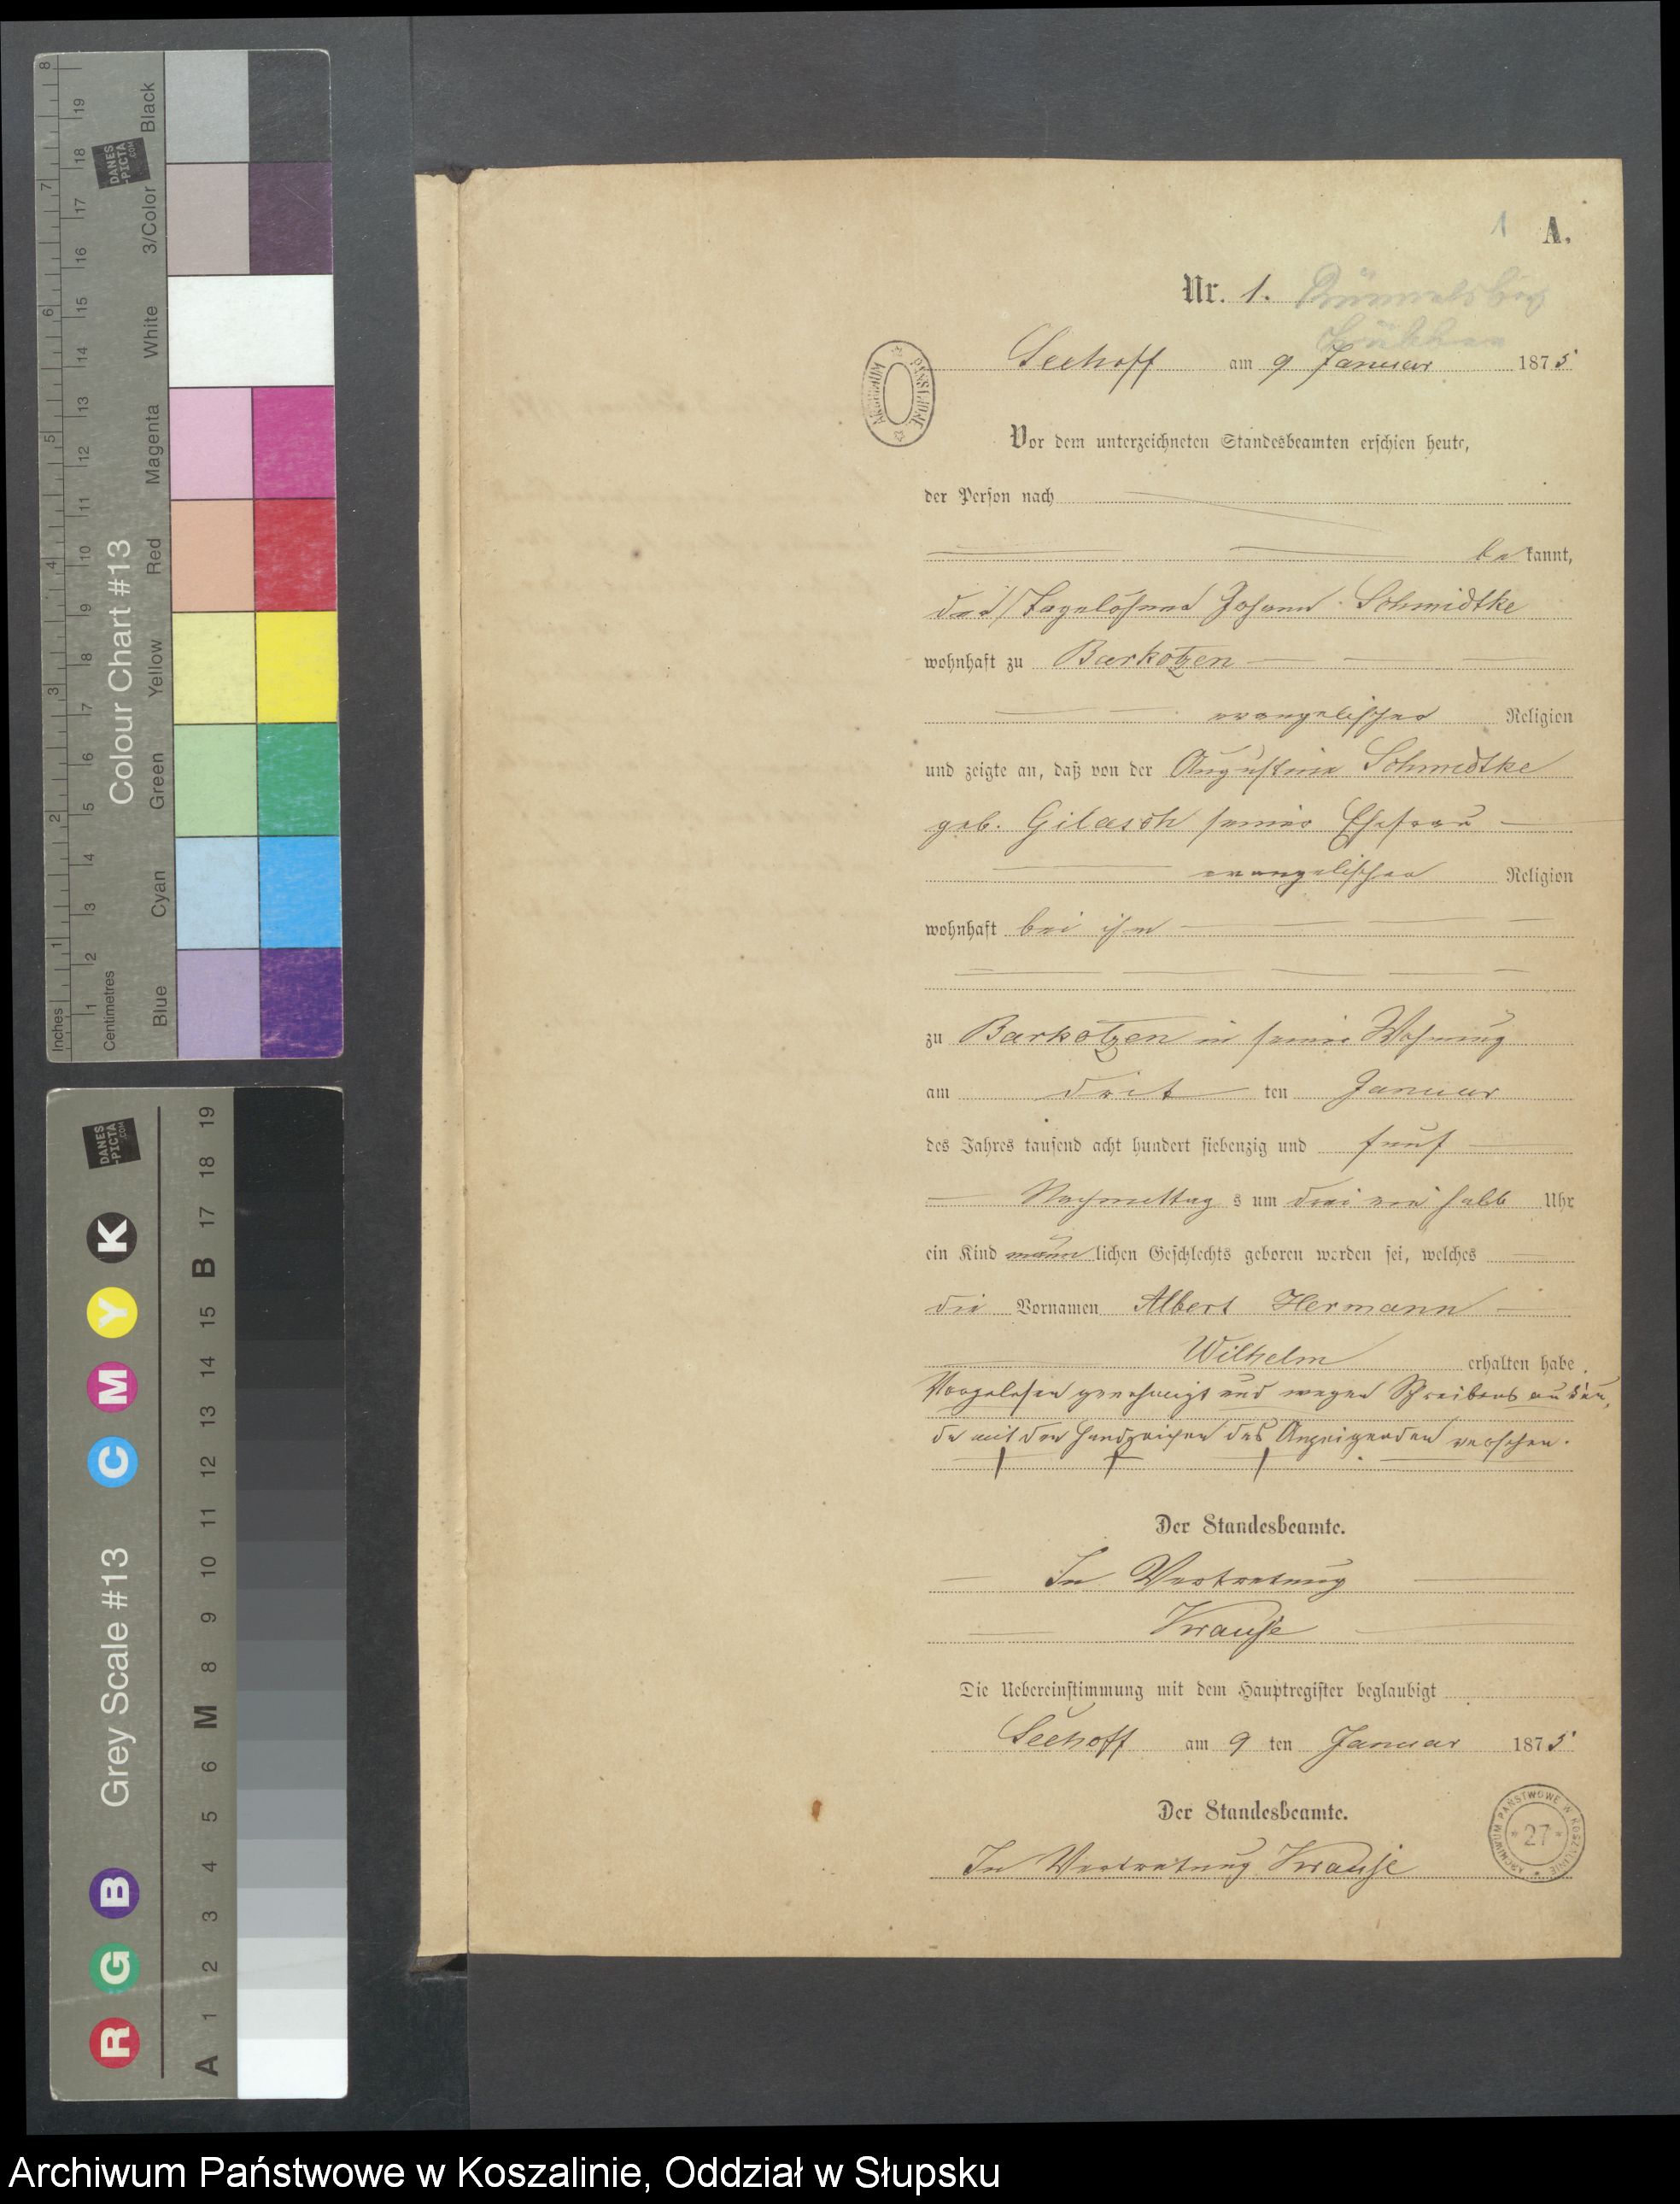 1 A.
Nr. 1.
Seehoff am 9 Januar 1875
ARCHIWUM PAŃSTWOWE
Vor dem unterzeichneten Standesbeamten erschien heute,
der Person nach
be kannt,
der Tagelöhner Johann Schmidtke
wohnhaft zu Barkotzen
evangelischer Religion
und zeigte an, daß von der Augustine Schmidtke
geb. Gilasch seiner Ehefrau
evangelischer Religion
wohnhaft bei ihm
zu Barkotzen in seiner Wohnung
am drit ten Januar
des Jahres tausend acht hundert siebenzig und fünf
Nachmittag s um drei ein halb Uhr
ein Kind männ lichen Geschlechts geboren worden sei, welches
die Vornamen Albert Hermann
Wilhelm erhalten habe.
Vorgelesen genehmigt und wegen Schreibens unkun,
de mit den Handzeichen des Anzeigenden versehen.
† † †
Der Standesbeamte.
In Vertretung
Krause
Die Uebereinstimmung mit dem Hauptregister beglaubigt
Seehoff am 9 ten Januar 1875
Der Standesbeamte.
In Vertretung Krause
ARCHIWUM PAŃSTWOWE W KOSZALINIE * 27 *
Inches 1 2 3 4 5 6 7 8
Centimetres 1 2 3 4 5 6 7 8 9 10 11 12 13 14 15 16 17 18 19
Colour Chart #13
Blue Cyan Green Yellow Red Magenta White 3/Color Black
DANES-PICTA.COM
Grey Scale #13
R G B C M Y K
A 1 2 3 4 5 6 M 8 9 10 11 12 13 14 15 B 17 18 19
DANES-PICTA.COM
Archiwum Państwowe w Koszalinie, Oddział w Słupsku